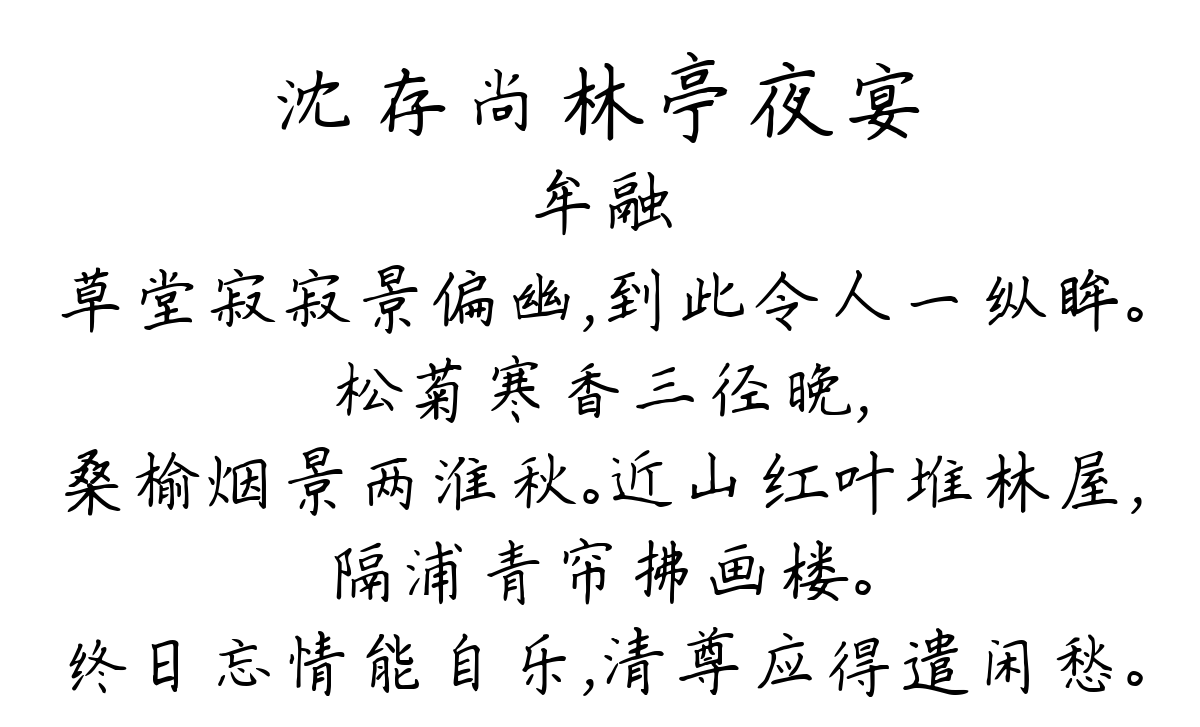 沈存尚林亭夜宴
牟融
草堂寂寂景偏幽,到此令人一纵眸。
松菊寒香三径晚,
桑榆烟景两淮秋。近山红叶堆林屋,
隔浦青帘拂画楼。
终日忘情能自乐,清尊应得遣闲愁。